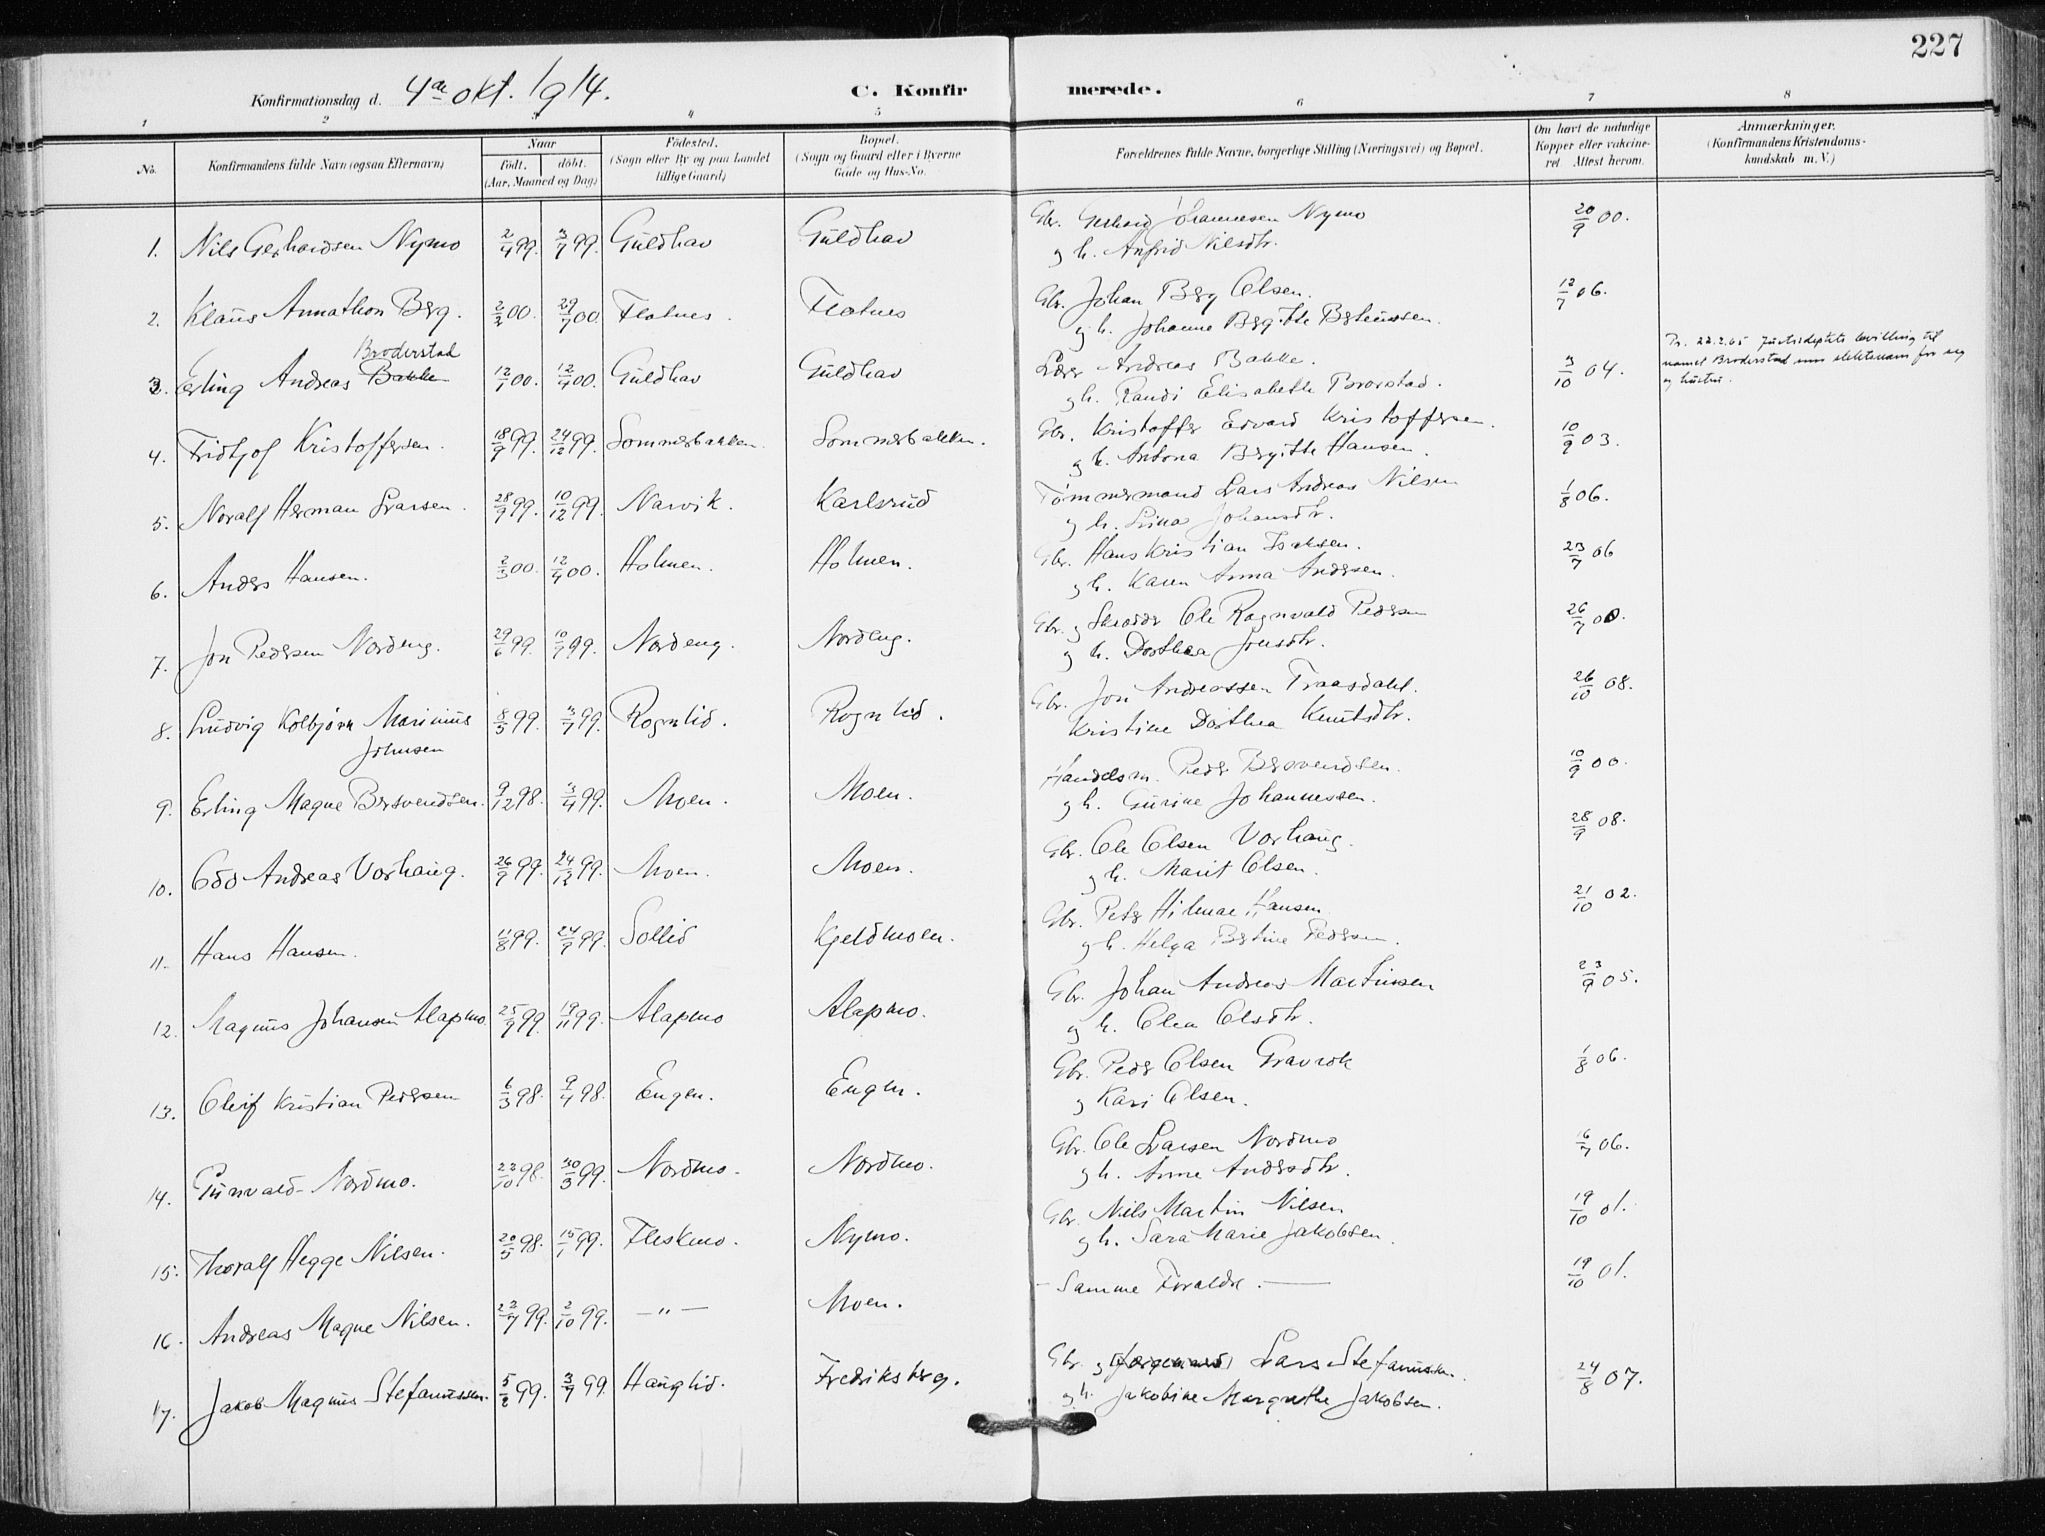 227
Konfirmationsdag d. 4de okt. 1914. C. Konfirmerede.
1 2 3 4 5 6 7 8
No. Konfirmandens fulde Navn (ogsaa Efternavn) Naar født. døbt. (Aar, Maaned og Dag) Fødested. (Sogn eller By og paa Landet tillige Gaard) Bopæl. (Sogn og Gaard eller i Byerne Gade og Hus-No. Forældrenes fulde Navne, borgerlige Stilling (Næringsvei) og Bopæl. Om havt de naturlige Kopper eller vakcineret. Attest herom. Anmærkninger. (Konfirmandens Kristendomskundskab m. V.)
1. Nils Gerhardsen Nymo 2/4 99. 3/7 99. Guldhav Guldhav Gbr. Gerhard Johannesen Nymo 20/9 00.
og h. Anfrid Nilsdtr.
2. Klaus Annathon Berg. 2/2 00. 29/7 00. Flatnes. Flatnes Gbr. Johan Berg Olsen. 12/7 06.
og h. Johanne Bergitte Berteussen.
Broderstad
3. Erling Andreas Bakke 12/1 00. 12/4 00. Guldhav Guldhav Lærer Andreas Bakke. 3/10 04.
og h. Randi Elisabeth Brorstad.
Pr. 22.2.65 Justisdeptets bevilling til
navnet Broderstad som slektsnavn for seg
og hustru.
4. Fridtjof Kristoffersen. 18/9 99. 24/12 99. Sommerbakken. Sommerbakken. Gbr. Kristoffer Edvard Kristoffersen. 10/9 03.
og h. Antona Bergitte Hansen.
5. Noralf Herman Larsen. 28/9 99. 10/12 99. Narvik. Karlsrud Tømmermand Lars Andreas Nilsen 1/8 06.
og h. Lina Johansdtr.
6. Anders Hansen. 2/3 00. 12/4 00. Holmen. Holmen. Gbr. Hans Kristian Isaksen. 23/7 06
og h. Karen Anna Andersen.
7. Jon Pedersen Nordeng. 29/6 99. 10/9 99. Nordeng. Nordeng. Gbr. og Skrædder Ole Ragnvald Pedersen 26/7 00.
og h. Dorthea Jonsdtr.
8. Ludvig Kolbjørn Marinius 8/5 99. 3/7 99. Rognlid. Rognlid. Gbr. Jon Andreassen Traasdahl. 26/10 08.
Johnsen Kristine Dorthea Knutsdtr.
9. Erling Magne Bersvendsen. 9/12 98. 3/4 99. Moen. Moen. Handelsm. Peder Bersvendsen. 10/9 00.
og h. Gurine Johannessen.
10. Odd Andreas Vorhaug. 26/9 99. 24/12 99. Moen. Moen. Gbr. Ole Olsen Vorhaug. 28/9 08.
og h. Marit Olsen.
11. Hans Hansen. 11/8 99. 24/9 99. Sollid Kjeldmoen. Gbr. Peter Hilmar Hansen 21/10 02.
og h. Helga Bertine Pedersen.
12. Magnus Johansen Alapmo 25/9 99. 19/11 99. Alapmo Alapmo. Gbr. Johan Andreas Martinsen 23/9 05.
og h. Olea Olsdtr.
13. Oleif Kristian Pedersen 6/3 98. 9/4 98. Engen. Engen. Gbr. Peder Olsen Gravrok 1/8 06.
og Kari Olsen.
14. Gunvald Nordmo. 22/10 98. 30/3 99. Nordmo. Nordmo. Gbr. Ole Larsen Nordmo 16/7 06.
og h. Anne Andersdtr.
15. Thoralf Hegge Nilsen. 20/5 98. 15/1 99. Fleskmo. Nymo. Gbr. Nils Martin Nilsen 19/10 01.
og h. Sara Marie Jakobsen.
16. Andreas Magne Nilsen. 22/7 99. 2/10 99. — " — Moen. — Samme Forældre. — 19/10 01.
17. Jakob Magnus Stefanussen. 5/2 99. 3/9 99. Hauglid. Fredriksberg. Gbr. og Lars Stefanussen. 24/8 07.
og h. Jakobine Margrethe Jakobsen.